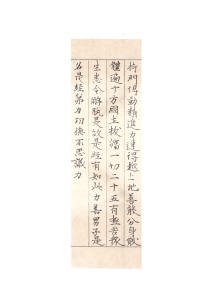 持門得勤精進力速得越上地善能分身散
體遍十方國土拔濟一切二十五有極苦眾
生悉令解脫是故是經有如此力善男子是
名是經第九功德不思議力